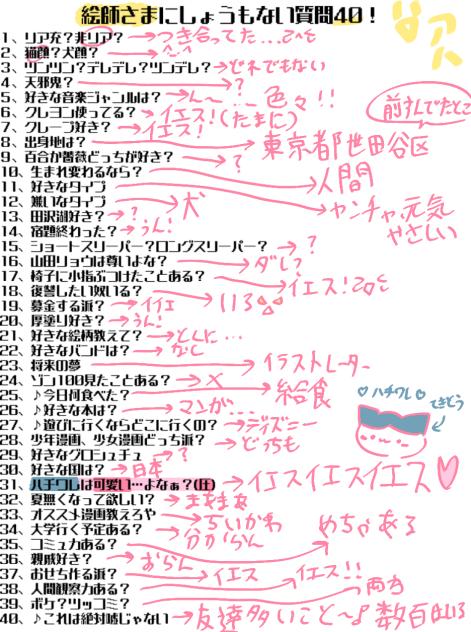 絵師さまにしょうもない質問40！
1、リア充？非リア？→つき合ってた…
2、猫顔？犬顔？→^-^
3、ツンツン？デレデレ？ツンデレ？→どれでもない
4、天邪鬼？→？
5、好きな音楽ジャンルは？→ん〜…色々！！
6、クレヨン使ってる？→イエス！(たまに)
7、クレープ好き？→イエス！
前すんでたとこ
8、出身地は？→東京都世田谷区
9、百合か薔薇どっちが好き？→？
10、生まれ変わるなら？→人間
11、好きなタイプ→ヤンチャ、元気 やさしい
12、嫌いなタイプ→犬
13、田沢湖好き？→？
14、宿題終わった？→うん！
15、ショートスリーパー？ロングスリーパー？→？
16、山田リョウは尊いよな？→ダレ？
17、椅子に小指ぶつけたことある？→イエス！
18、復讐したい奴いる？→いる
19、募金する派？→イイエ
20、厚塗り好き？→うん！
21、好きな絵柄教えて？→とくに…
22、好きなバンドは？→なし
23、将来の夢→イラストレーター
24、ゾン100見たことある？→×
25、♪今日何食べた？→給食
26、♪好きな本は？→マンガ…
♡ハチワレ♡
てきとう
27、♪遊びに行くならどこに行くの？→ディズニー
28、少年漫画、少女漫画どっち派？→どっちも
29、好きなグロシュチュ→？
30、好きな国は？→日本
31、ハチワレは可愛い…よなぁ？(圧)→イエスイエスイエス
32、夏無くなって欲しい？→まあまあ
33、オススメ漫画教えろや→ちいかわ
34、大学行く予定ある？→分からん
35、コミュ力ある？→めちゃある
36、親戚好き？→おらん
37、おせち作る派？→イエス
38、人間観察力ある？→イエス！！
39、ボケ？ツッコミ？→両方
40、♪これは絶対嘘じゃない→友達多いこと〜♪数百日いる